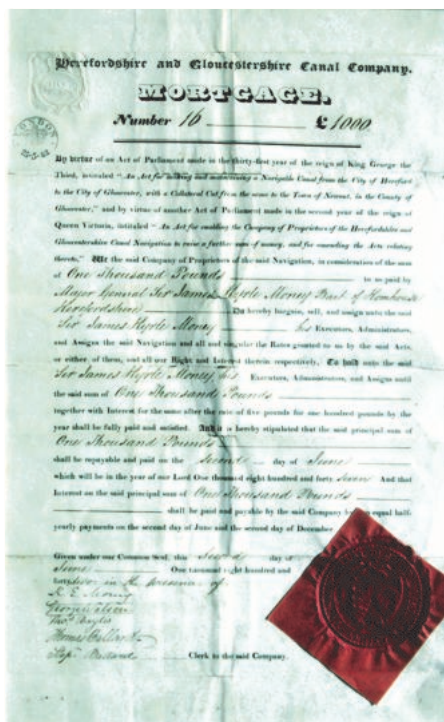 Herefordshire and Gloucestershire Canal Company.
MORTGAGE.
Number 16 £ 1000.
By virtue of an Act of Parliament made in the thirty-first year of the reign of King George the
Third, intituled "An Act for making and maintaining a Navigable Canal from the City of Hereford
to the City of Gloucester, with a Collateral Cut from the same to the Town of Newent, in the County of
Gloucester," and by virtue of another Act of Parliament made in the second year of the reign of
Queen Victoria, intituled "An Act for enabling the Company of Proprietors of the Herefordshire and
Gloucestershire Canal Navigation to raise a further sum of money, and for amending the Acts relating
thereto," We the said Company of Proprietors of the said Navigation, in consideration of the sum
of One Thousand Pounds to us paid by
Major General Sir James Kyrle Money Bart of
Herefordshire Do hereby bargain, sell, and assign unto the said
Sir James Kyrle Money his Executors, Administrators,
and Assigns the said Navigation and all and singular the Rates granted to us by the said Acts,
or either of them, and all our Right and Interest therein respectively, To hold unto the said
Sir James Kyrle Money his Executors, Administrators, and Assigns until
the said sum of One Thousand Pounds
together with Interest for the same after the rate of five pounds for one hundred pounds by the
year shall be fully paid and satisfied. And it is hereby stipulated that the said principal sum of
One Thousand Pounds
shall be repayable and paid on the second day of June
which will be in the year of our Lord One thousand eight hundred and forty seven And that
Interest on the said principal sum of One Thousand Pounds
shall be paid and payable by the said Company by equal half-
yearly payments on the second day of June and the second day of December
Given under our Common Seal, this second day of
June One thousand eight hundred and
forty in the presence of
K. E. Money
Thos. Baylis
Thomas Ballard
Clerk to the said Company.